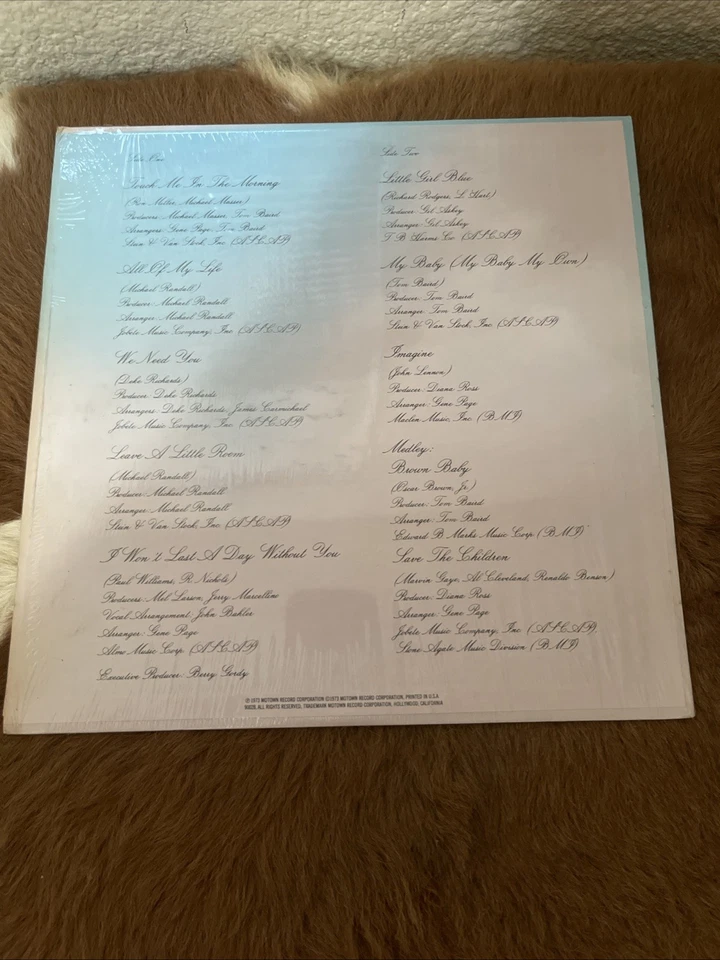 Side One
Touch Me In The Morning
(Ron Miller, Michael Masser)
Producers: Michael Masser, Tom Baird
Arrangers: Gene Page, Tom Baird
Stein & Van Stock, Inc. (ASCAP)
All Of My Life
(Michael Randall)
Producer: Michael Randall
Arranger: Michael Randall
Jobete Music Company, Inc. (ASCAP)
We Need You
(Deke Richards)
Producer: Deke Richards
Arrangers: Deke Richards, James Carmichael
Jobete Music Company, Inc. (ASCAP)
Leave A Little Room
(Michael Randall)
Producer: Michael Randall
Arranger: Michael Randall
Stein & Van Stock, Inc. (ASCAP)
I Won't Last A Day Without You
(Paul Williams, R. Nichols)
Producers: Mel Larson, Jerry Marcellino
Vocal Arrangement: John Bahler
Arranger: Gene Page
Almo Music Corp. (ASCAP)
Executive Producer: Berry Gordy
Side Two
Little Girl Blue
(Richard Rodgers, L. Hart)
Producer: Gil Askey
Arranger: Gil Askey
T. B. Harms Co. (ASCAP)
My Baby (My Baby My Own)
(Tom Baird)
Producer: Tom Baird
Arranger: Tom Baird
Stein & Van Stock, Inc. (ASCAP)
Imagine
(John Lennon)
Producer: Diana Ross
Arranger: Gene Page
Maclen Music, Inc. (BMI)
Medley:
Brown Baby
(Oscar Brown, Jr.)
Producer: Tom Baird
Arranger: Tom Baird
Edward B. Marks Music Corp. (BMI)
Save The Children
(Marvin Gaye, Al Cleveland, Renaldo Benson)
Producer: Diana Ross
Arranger: Gene Page
Jobete Music Company, Inc. (ASCAP)
Stone Agate Music Division (BMI)
Ⓟ 1973 MOTOWN RECORD CORPORATION ©1973 MOTOWN RECORD CORPORATION, PRINTED IN U.S.A.
ALL RIGHTS RESERVED, TRADEMARK MOTOWN RECORD CORPORATION, HOLLYWOOD, CALIFORNIA